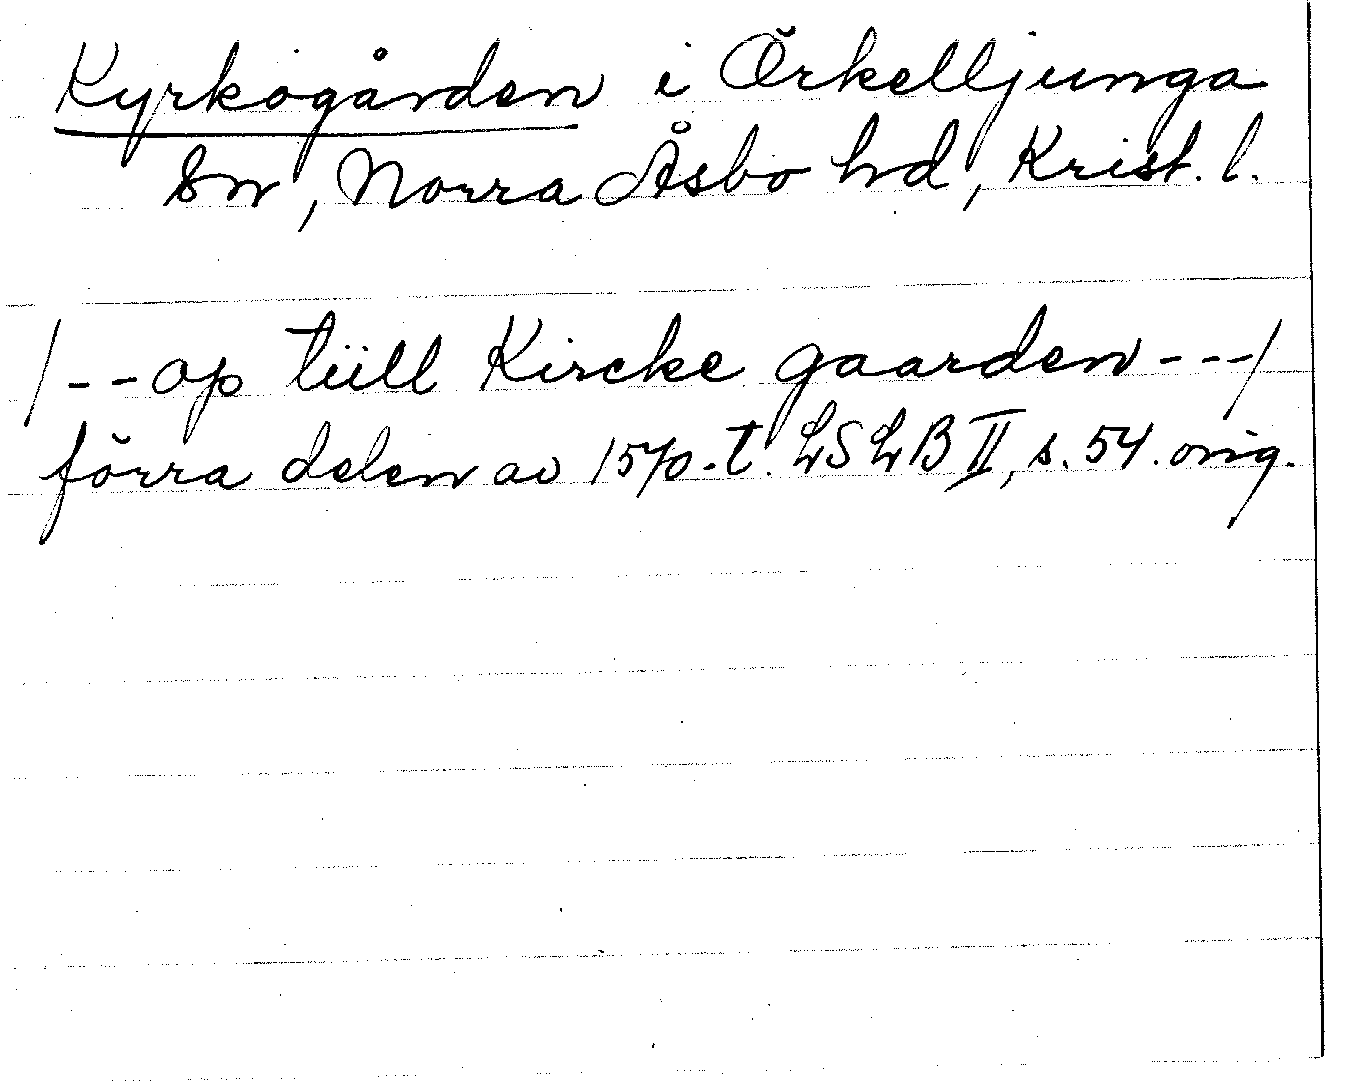 Kyrkogården i Örkelljunga
sn, Norra Åsbo hd, Krist. l.
/--op tüll Kircke gaarden---/
förra delen av 1570-t. LSLB II, s. 54. orig.